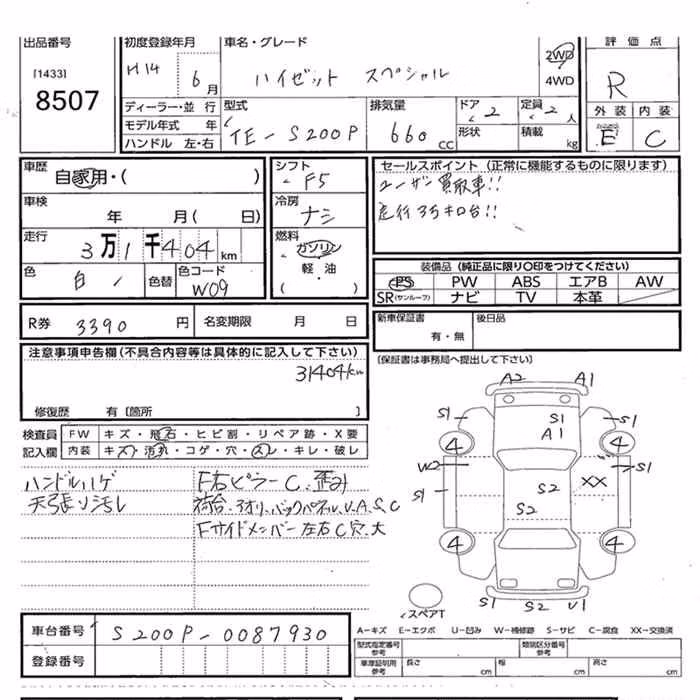 出品番号
[1433]
8507
初度登録年月
H14 6月
車名・グレード
ハイゼット スペシャル
2WD
4WD
評価点
R
外装 内装
E C
ディーラー・並行
モデル年式 年
ハンドル 左・右
型式
TE-S200P
排気量
660 cc
ドア 2
形状
定員 2 人
積載 kg
車歴
自家用・( )
車検
年 月( 日)
走行
3万1千404km
色
白 色替
色コード
W09
シフト
F5
冷房
ナシ
燃料
ガソリン
軽・油
( )
セールスポイント (正常に機能するものに限ります)
ユーザー買取車!!
走行3万キロ台!!
装備品 (純正品に限り○印をつけてください)
PS PW ABS エアB AW
SR(サンルーフ) ナビ TV 本革
R券 3390 円 名変期限 月 日
新車保証書 後日品
有・無
[保証書は事務局へ提出して下さい]
注意事項申告欄 (不具合内容等は具体的に記入して下さい)
31404km
修復歴 有 [箇所 ]
検査員 FW キズ・飛石・ヒビ割・リペア跡・X要
記入欄 内装 キズ・汚れ・コゲ・穴・スレ・キレ・破レ
ハンドルハゲ
天張り汚れ
F右ピラーC、歪み
荷台、3オリ、バックパネル、U、A、S、C
Fサイドメンバー左右C穴、大
A2 A1
S1 S1 S1
A1
4 4
W2 XX S1
S1 S2
S2
4 4
スペアT
S1 S2 U1
車台番号 S200P-0087930
登録番号
A-キズ E-エクボ U-凹み W-補修跡 S-サビ C-腐食 XX-交換済
型式指定番号
参考
類別区分番号
参考
車庫証明用
参考
長さ cm 幅 cm 高さ cm